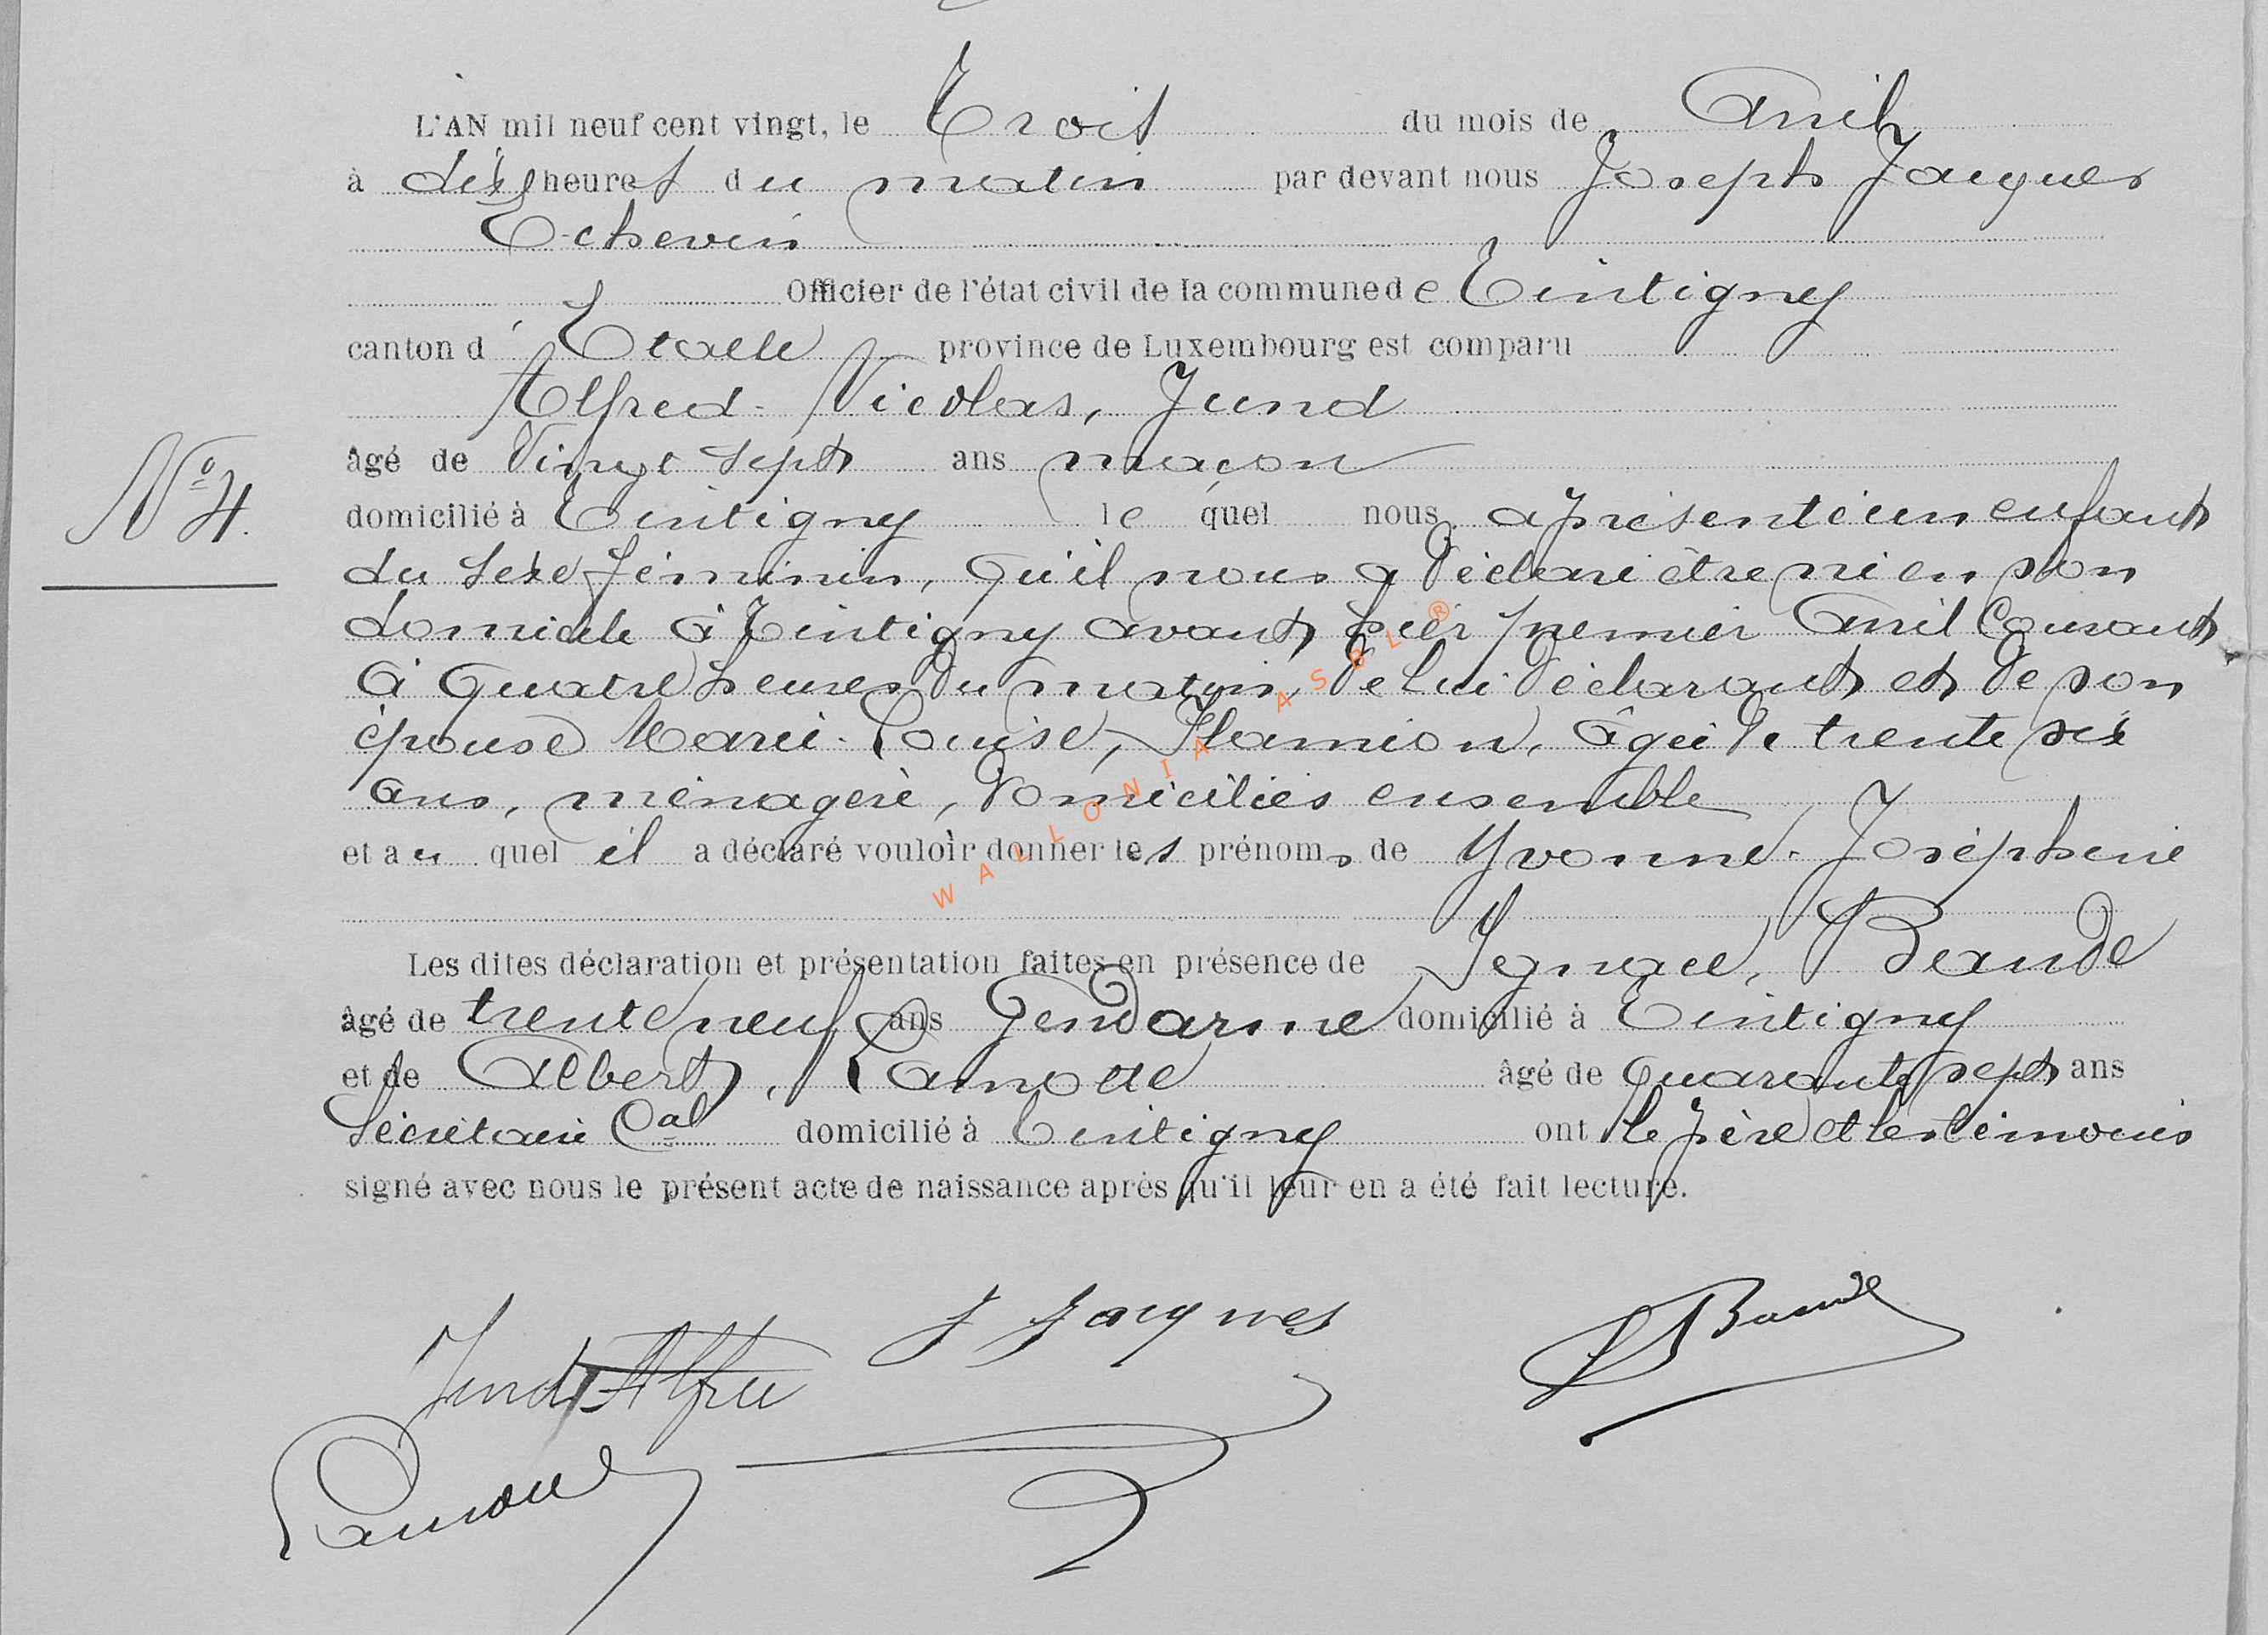 L'AN mil neuf cent vingt, le Trois du mois de Avril
à dix heures du matin par devant nous Joseph Jacques
Echevin
Officier de l'état civil de la commune de Tintigny
canton d'Etalle province de Luxembourg est comparu
Alfred-Nicolas, Jund
âgé de Vingt sept ans maçon
N° 4.
domicilié à Tintigny lequel nous a présenté un enfant
du sexe féminin, qu'il nous a déclaré être né en son
domicile à Tintigny avant hier premier Avril Courant
à quatre heures du matin, de lui déclarant et de son
épouse Marie-Louise, Hamion, âgée de trente six
ans, ménagère, domiciliés ensemble
et au quel il a déclaré vouloir donner les prénoms de Yvonne-Joséphine
WALLONIA ASBL ®
Les dites déclaration et présentation faites en présence de Ignace, Beaude
âgé de trente neuf ans Gendarme domicilié à Tintigny
et de Albert, Lamotte âgé de quarante sept ans
Secrétaire Cal domicilié à Tintigny ont le père et les témoins
signé avec nous le présent acte de naissance après qu'il leur en a été fait lecture.
Jund Alfred J Jacques
Lamotte